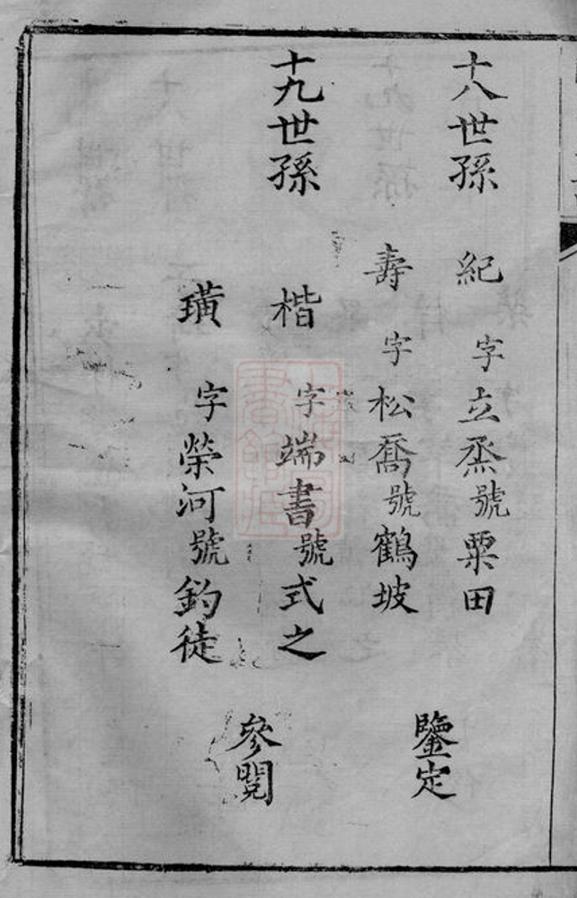 十八世孫 紀 字立烝號粟田
壽 字松喬號鶴坡
鑒定
十九世孫 楷 字端書號式之
璜 字榮河號釣徒
參閱